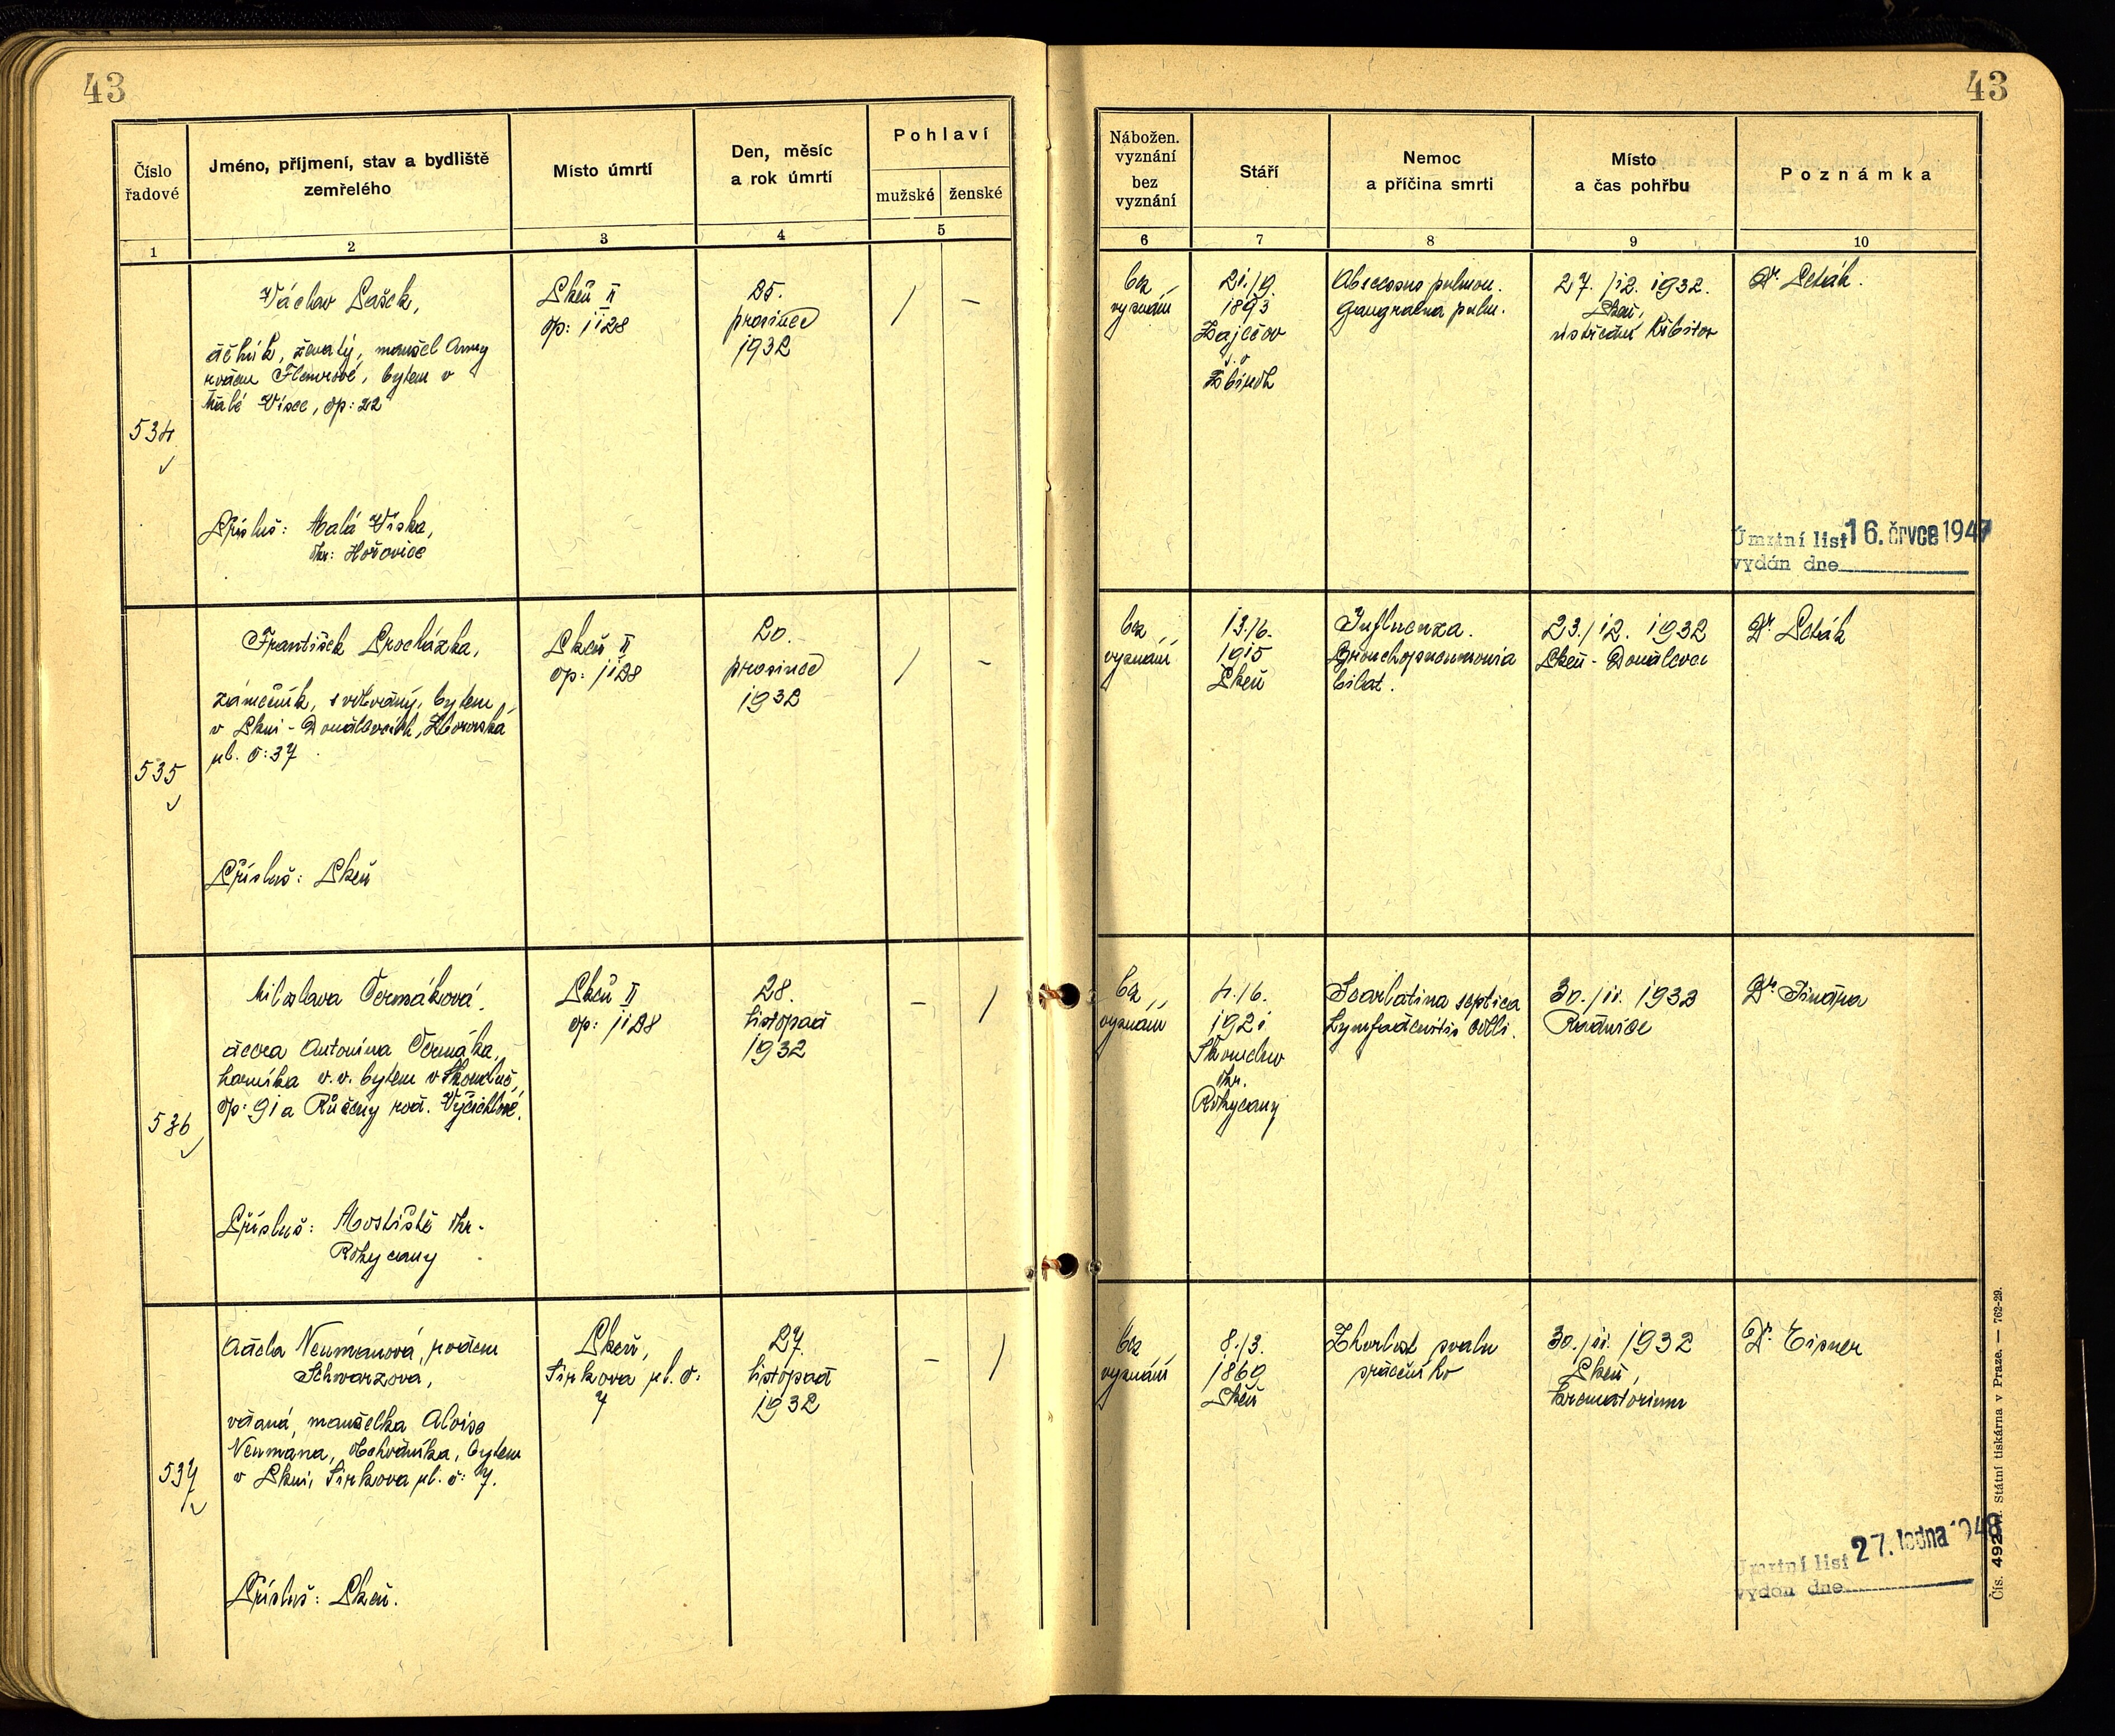 43
43
Číslo
řadové
Jméno, příjmení, stav a bydliště
zemřelého
Místo úmrtí
Den, měsíc
a rok úmrtí
Pohlaví
mužské
ženské
Nábožen.
vyznání
bez
vyznání
Stáří
Nemoc
a příčina smrti
Místo
a čas pohřbu
Poznámka
1
2
3
4
5
6
7
8
9
10
534
Václav Lašek,
dělník, ženatý, manžel Anny
rozen , bytem v
Malé Vísce, čp: 22
Přísluš: Malá Víska,
okr: Hořovice
Plzeň II
čp: 1128
25.
prosince
1932
/
–
bez
vyznání
21./9.
1893
Zaječov
Zbiroh
Abscessus pulmon.
Gangraena pulm.
27./12. 1932.
Plzeň,
ústřední hřbitov
Dr. Peták.
Úmrtní list 16. črvce 1947
vydán dne
535
František Procházka,
zámečník, svobodný, bytem
v Plzni-Doudlevcích, Zborovská
ul. č: 37
Přísluš: Plzeň
Plzeň II
čp: 1128
20.
prosince
1932
/
–
bez
vyznání
13./6.
1915
Plzeň
Influenza.
Bronchopneumonia
bilat.
23./12. 1932
Plzeň-Doudlevce
Dr. Peták
536
Miloslava Čermáková,
dcera Antonína Čermáka,
horníka v. v. bytem v Skomelně,
čp: 91 a Růženy roz. Vyčichlové.
Přísluš: Mostiště okr.
Rokycany
Plzeň II
čp: 1128
28.
listopad
1932
–
/
bez
vyznání
4./6.
1921
Skomelno
okr.
Rokycany
Scarlatina septica
Lymfadenitis colli.
30./11. 1932
Radnice
Dr.
537
Adela Neumanová, rozen
Schwarzova,
vdaná, manželka Aloise
Neumana, obchodníka, bytem
v Plzni, Jirkova ul. č: 7.
Přísluš: Plzeň.
Plzeň,
Jirkova ul. č:
7
27.
listopad
1932
–
/
bez
vyznání
8./3.
1869
Plzeň
Zhorlost svalu
srdečního
30./11. 1932
Plzeň,
krematórium
Dr. Eisner
Úmrtní list 27. ledna 1948
vydán dne
Státní tiskárna v Praze. — 762-29.